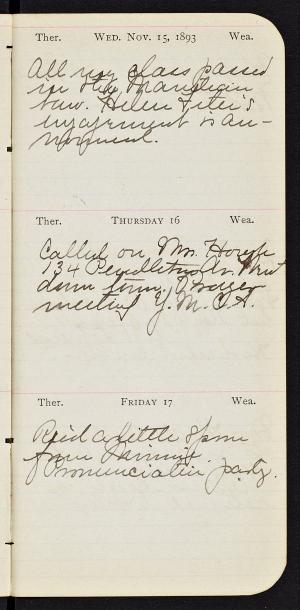 Ther. WED. NOV. 15, 1893 Wea.
All my class passed
in the
law. Helen
engagement is an-
Ther. THURSDAY 16 Wea.
Called on Mrs.
134 Pendleton Av. Went
down town. Prayer
meeting Y. M. C. A.
Ther. FRIDAY 17 Wea.
a little
from
Pronunciation party.